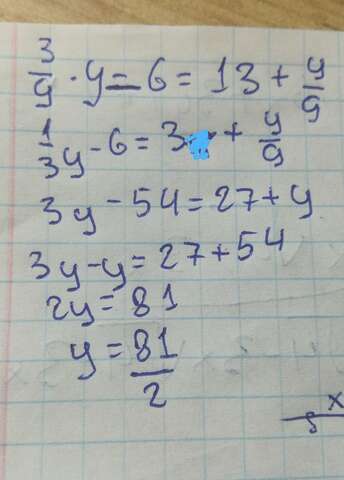 3/9 · y = 6 = 13 + y/9
1/3 y - 6 = 3 + y/9
3y - 54 = 27 + y
3y - y = 27 + 54
2y = 81
y = 81/2
x
5